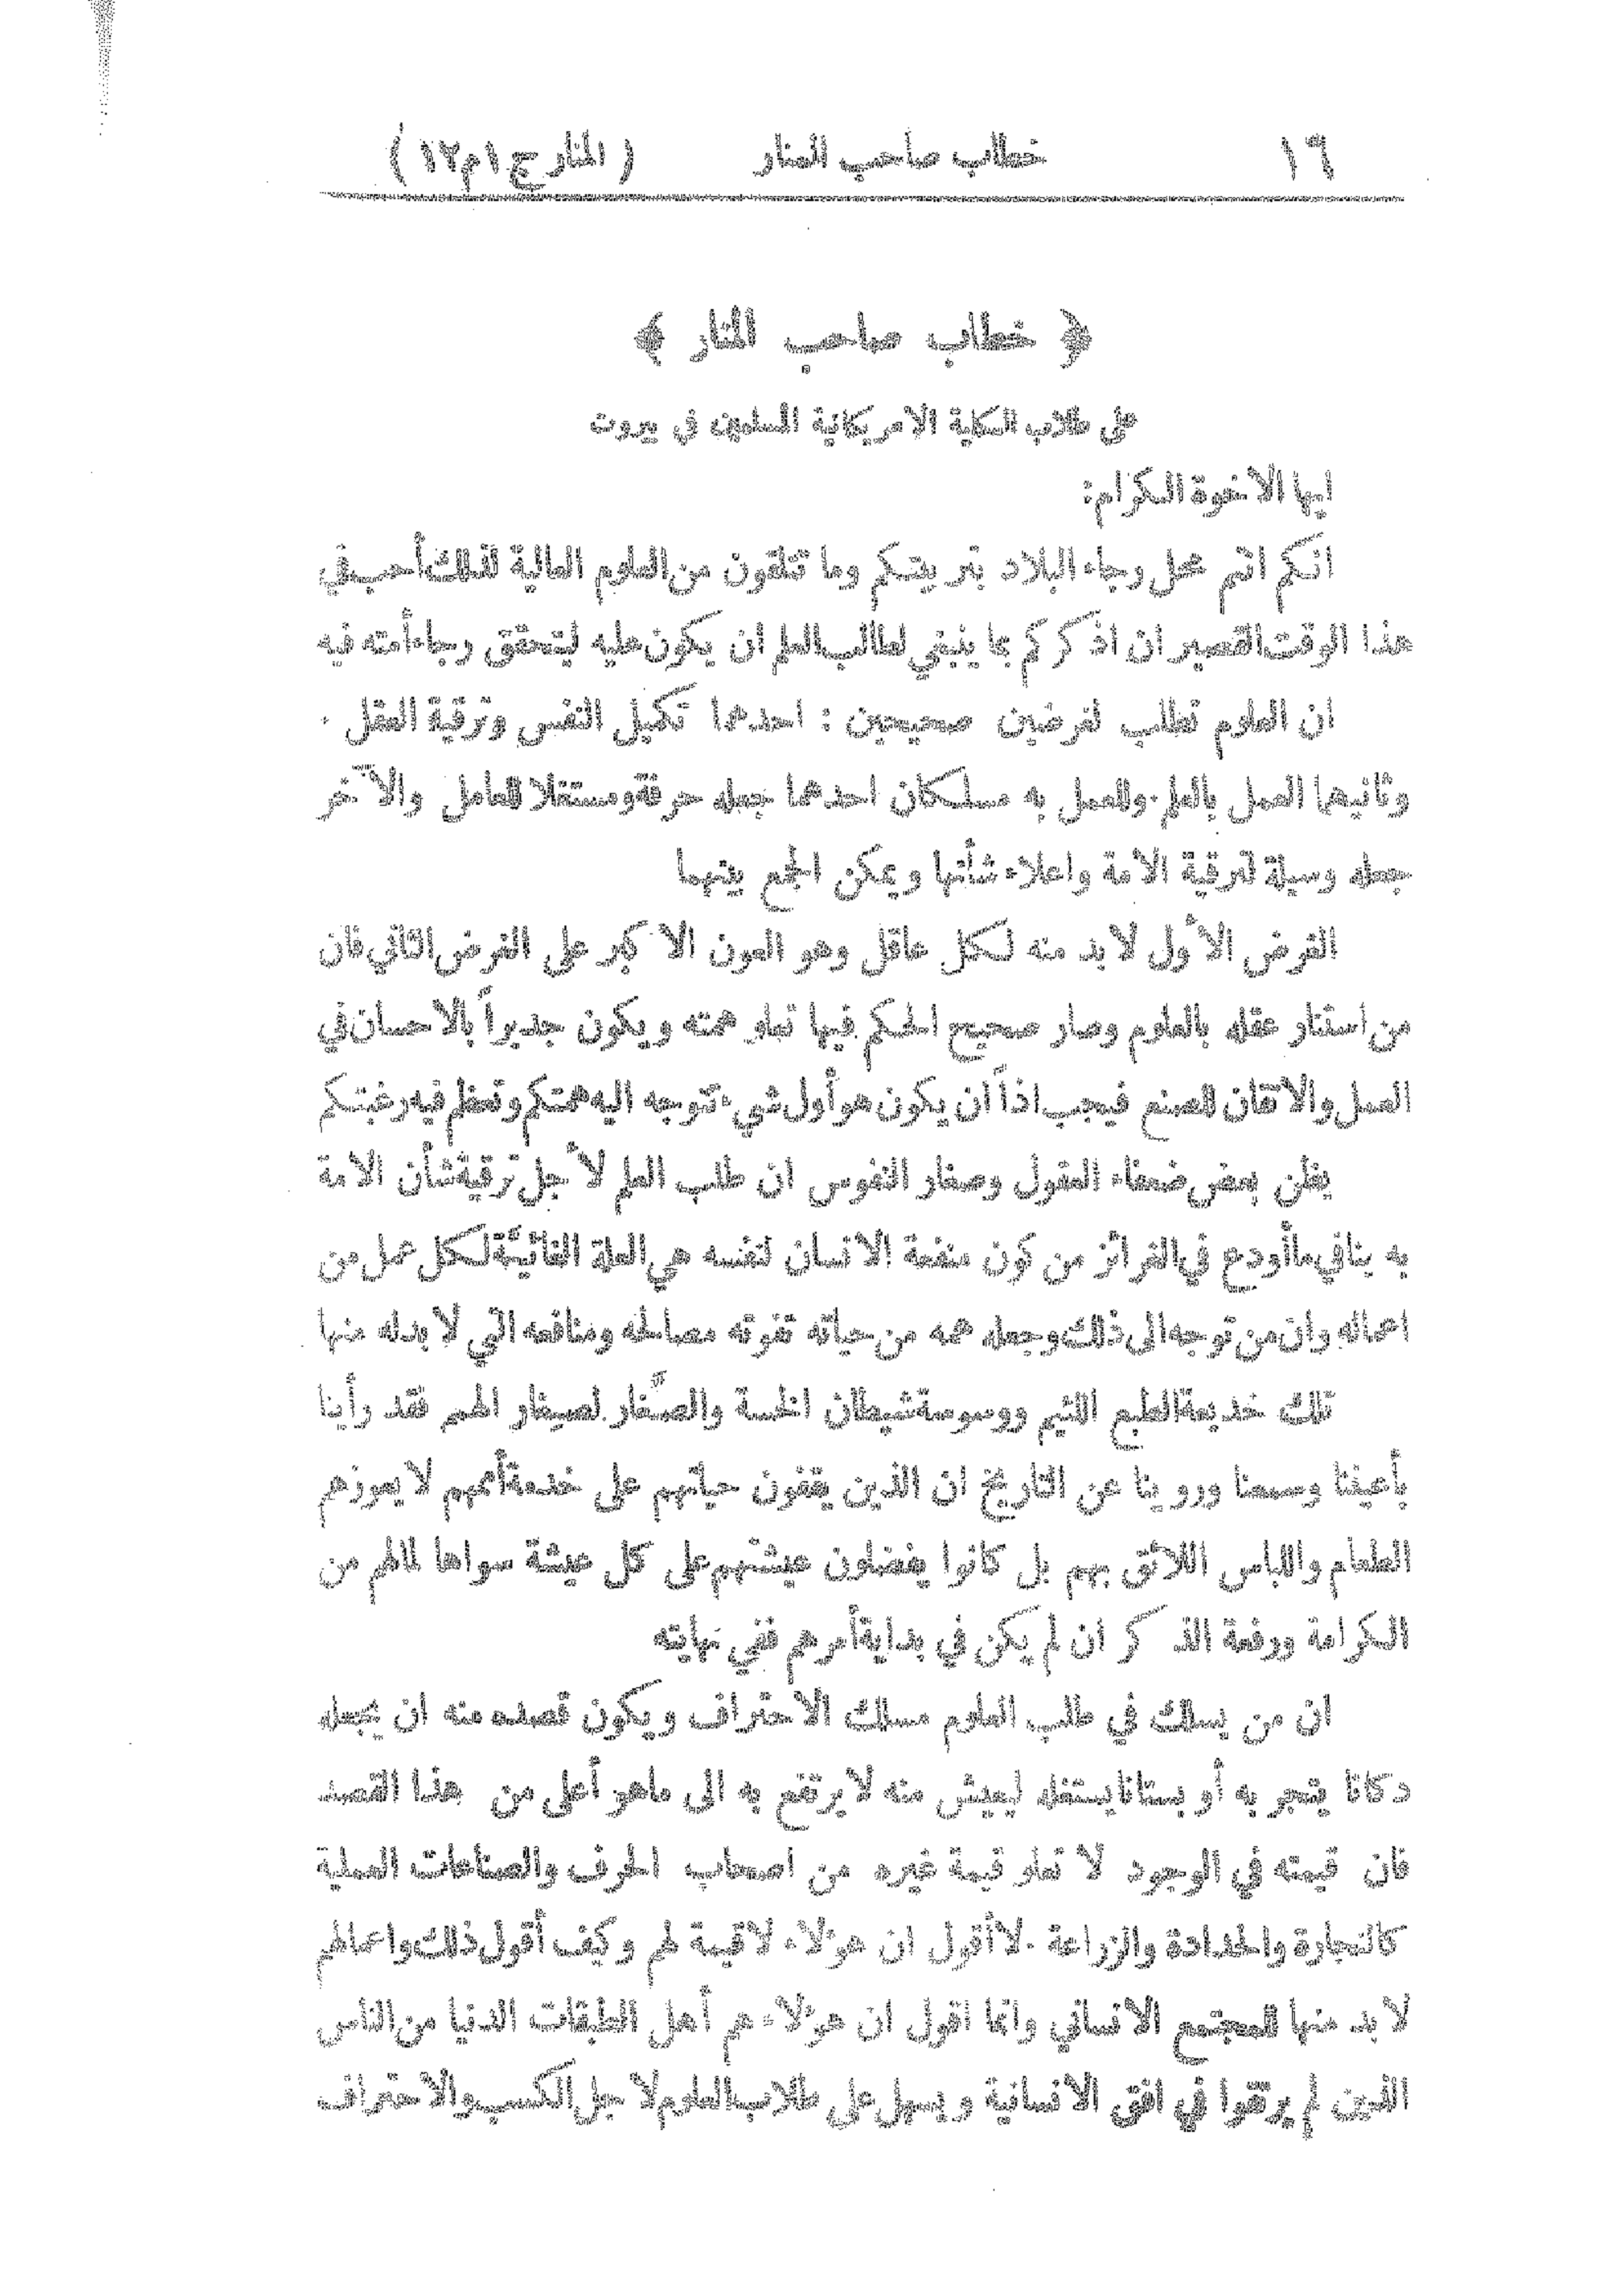 ١٦ خطاب صاحب المنار ( المنار ج ١ م ١٢ )
﴿ خطاب صاحب المنار ﴾
على طلاب الكلية الامريكانية المسلمين في بيروت
ايها الاخوة الكرام:
انكم انتم محل رجاء البلاد بتربيتكم وما تتلقون من العلوم العالية لذلك أحب في
هذا الوقت القصير ان اذكركم بما ينبغي لطالب العلم ان يكون عليه ليتحقق رجاء أمته فيه
ان العلوم تطلب لغرضين صحيحين : احدهما تكميل النفس وترقية العقل .
وثانيهما العمل بالعلم . وللعمل به مسلكان احدهما جعله حرفة ومستغلا للعامل والآخر
جعله وسيلة لترقية الامة واعلاء شأنها ويمكن الجمع بينهما
الغرض الأول لا بد منه لكل عاقل وهو العون الاكبر على الغرض الثاني فان
من استنار عقله بالعلوم وصار صحيح الحكم فيها تعلو همته ويكون جديراً بالاحسان في
العمل والاتقان للصنع فيجب اذاً أن يكون هو أول شيء تتوجه اليه همتكم وتعظم فيه رغبتكم
يظن بعض ضعفاء العقول وصغار النفوس ان طلب العلم لأجل ترقية شأن الامة
به ينافي ما أودع في الغرائز من كون منفعة الانسان لنفسه هي العلة الغائيَّة لكل عمل من
اعماله وان من توجه الى ذلك وجعله همه من حياته تفوته مصالحه ومنافعه التي لا بد له منها
تلك خديعة الطبع اللئيم ووسوسة شيطان الخسة والصَّغار لصغار الهمم فقد رأينا
بأعيننا وسمعنا وروينا عن التاريخ ان الذين يقفون حياتهم على خدمة أممهم لا يعوزهم
الطعام واللباس اللائق بهم بل كانوا يفضلون عيشتهم على كل عيشة سواها لما لهم من
الكرامة ورفعة الذكر ان لم يكن في بداية أمرهم ففي نهايته
ان من يسلك في طلب العلوم مسلك الاحتراف ويكون قصده منه ان يجعله
دكانا يتجر به أو بستانا يستغله ليعيش منه لا يرتفع به الى ما هو أعلى من هذا القصد
فان قيمته في الوجود لا تعلو قيمة غيره من اصحاب الحرف والصناعات العملية
كالنجارة والحدادة والزراعة . لا أقول ان هؤلاء لا قيمة لهم وكيف أقول ذلك واعمالهم
لا بد منها للمجتمع الانساني وانما اقول ان هؤلاء هم أهل الطبقات الدنيا من الناس
الذين لم يرتقوا في افق الانسانية ويسهل على طلاب العلوم لاجل الكسب والاحتراف